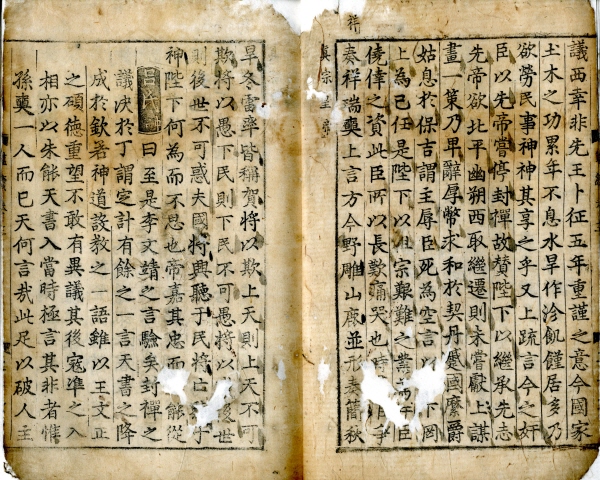 祥
真宗皇帝
議西幸非先王卜征五年重謹之意今國家
土木之功累年不息水旱作沴飢饉居多乃
欲勞民事神神其享之乎又上疏言今之奸
臣以先帝嘗停封禪故贊陛下以繼承先志
先帝欲北平幽朔西取繼遷則未嘗獻上謀
畫一策乃卑辭厚幣求和於契丹蹙國縻爵
姑息於保吉謂主辱臣死為空言以下罔
上為己任是陛下以祖宗艱難之業為奸臣
僥倖之資此臣所以長歎痛哭也時爭
奏祥瑞奭上言方今野鵰山鹿並形奏簡秋
旱冬雷率皆稱賀將以欺上天則上天不可
欺將以愚下民則下民不可愚將以後世
則後世不可惑夫國將興聽于民將亡于
神陛下何為而不思也帝嘉其忠而能從
呂氏曰至是李文靖之言驗矣封禪之
議決於丁謂定計有餘之一言天書之降
成於欽若神道設教之一語雖以王文正
之碩德重望不敢有異議其後寇準之入
相亦以朱能天書入當時極言其非者惟
孫奭一人而已天何言哉此足以破人主